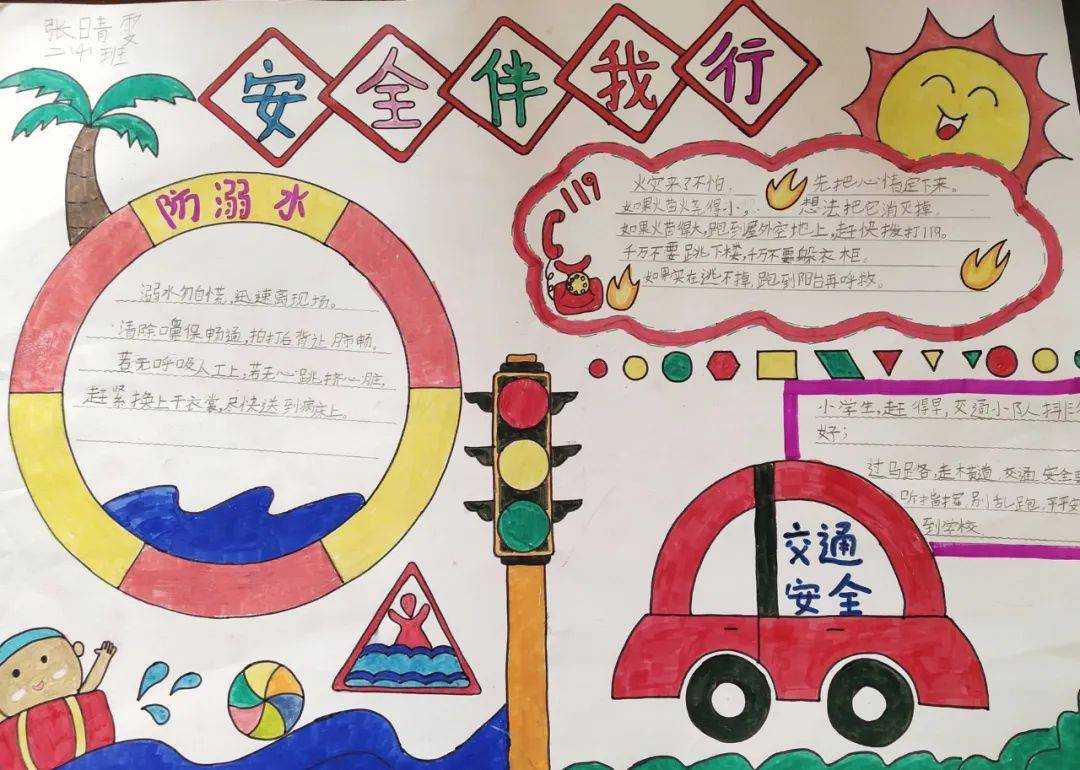 张晴雯
二(4)班
安全伴我行
防溺水
溺水勿自慌,迅速离现场。
清除口鼻保畅通,拍打后背让肺畅。
若无呼吸人工上,若无心跳挤心脏,
赶紧换上干衣裳,尽快送到病床上。
119
火灾来了不怕, 先把心情定下来。
如果火苗火焰得小, 想法把它消灭掉,
如果火苗得大,跑到屋外空地上,赶快拨打119。
千万不要跳下楼,千万不要躲衣柜,
如果实在逃不掉,跑到阳台再呼救。
小学生,赶得早,交通小队排
好;
过马路,走横道,交通安全
听指挥,别乱跑,平安
到学校
交通
安全